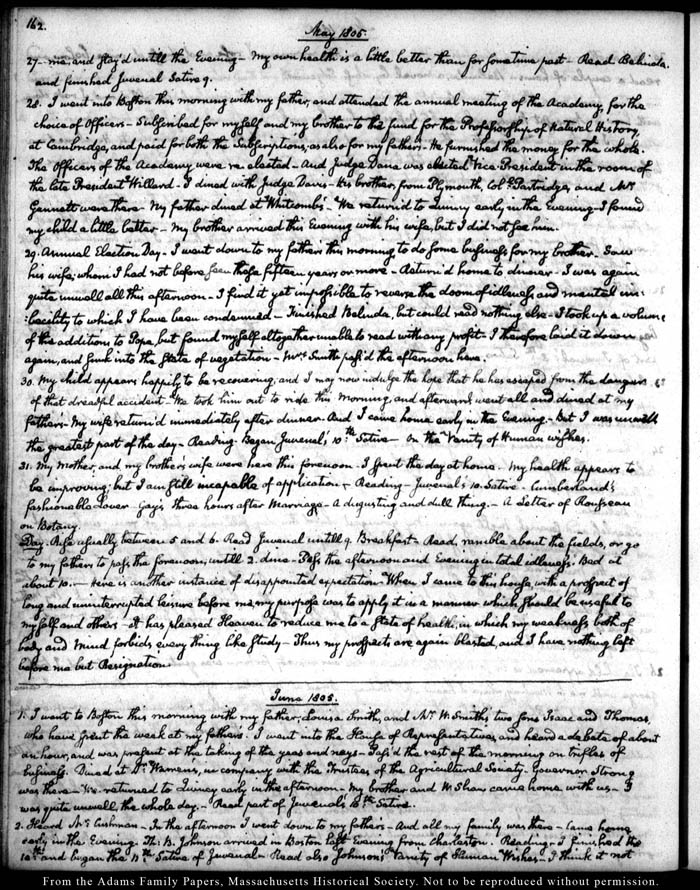 162.
May 1805.
27. me, and stay'd untill the Evening. My own health is a little better than for some time past. Read Belinda.
and finished Juvenal Satire 9.
28. I went into Boston this morning with my father, and attended the annual meeting of the Academy, for the
choice of Officers. Subscribed for myself and my brother to the fund for the Professorship of Natural History,
at Cambridge, and paid for both the Subscriptions, as also for my father's. He furnished the money for the whole.
The Officers of the Academy were re-elected. And Judge Dana was elected Vice-President in the room of
the late President Willard. I dined with Judge Davis. His brother, from Plymouth, Coll. Partridge, and Mr.
Gannett were there. My father dined at Whitcomb's. We return'd to Quincy early in the Evening. I found
my child a little better. My brother arrived this Evening with his wife, but I did not see him.
29. Annual Election Day. I went down to my father's this morning to do some business for my brother. Saw
his wife; whom I had not before seen these fifteen years or more. Return'd home to dinner. I was again
quite unwell all this afternoon. I find it yet impossible to reverse the doom of idleness and mental im-
:becility to which I have been condemned. Finished Belinda, but could read nothing else. I took up a volume
of the additions to Pope, but found myself altogether unable to read with any profit. I therefore laid it down
again, and sunk into the State of vegetation. Mrs. Smith pass'd the afternoon here.
30. My child appears happily to be recovering, and I may now indulge the hope that he has escaped from the dangers
of that dreadful accident. We took him out to ride this morning, and afterwards went all and dined at my
father's. My wife return'd immediately after dinner. And I came home early in the Evening. But I was unwell
the greatest part of the day. Reading. Began Juvenal's 10th. Satire. On the Vanity of Human wishes.
31. My Mother, and my brother's wife were here this forenoon. I spent the day at home. My health appears to
be improving; but I am still incapable of application. Reading. Juvenal's 10. Satire. Cumberland's
fashionable Lover. Gay's three hours after Marriage. A disgusting and dull thing. A Letter of Rousseau
on Botany.
Day. Rise usually between 5 and 6. Read Juvenal untill 9. Breakfast. Read, ramble about the fields, or go
to my father's to pass the forenoon, untill 2. dine. Pass the afternoon and Evening in total idleness. Bed at
about 10. Here is another instance of disappointed expectation. When I came to this house, with a prospect of
long and uninterrupted leisure before me, my purpose was to apply it in a manner which should be useful to
myself and others. It has pleased Heaven to reduce me to a State of health, in which my weakness both of
body and mind forbids every thing like Study. Thus my prospects are again blasted, and I have nothing left
before me but Resignation.
June 1805.
1. I went to Boston this morning with my father, Louisa Smith, and Mr. W. Smith's two sons Isaac and Thomas,
who have spent the week at my father's. I went into the House of Representatives, and heard a debate of about
an hour, and was present at the taking of the yeas and nays. Pass'd the rest of the morning on trifles of
business. Dined at Dr. Warren's, in company with the Trustees of the Agricultural Society. Governor Strong
was there. We returned to Quincy early in the afternoon. My brother and W. Shaw came home with us. I
was quite unwell, the whole day. Read part of Juvenal's Satire.
2. Heard Mr. Cushman. In the afternoon I went down to my father's. And all my family was there. Came home
early in the Evening. Th: B. Johnson arrived in Boston last Evening from Charleston. Reading. I finished the
10th. and began the 11th. Satire of Juvenal. Read also Johnson's Vanity of Human Wishes. I think it not
From the Adams Family Papers, Massachusetts Historical Society. Not to be reproduced without permission.